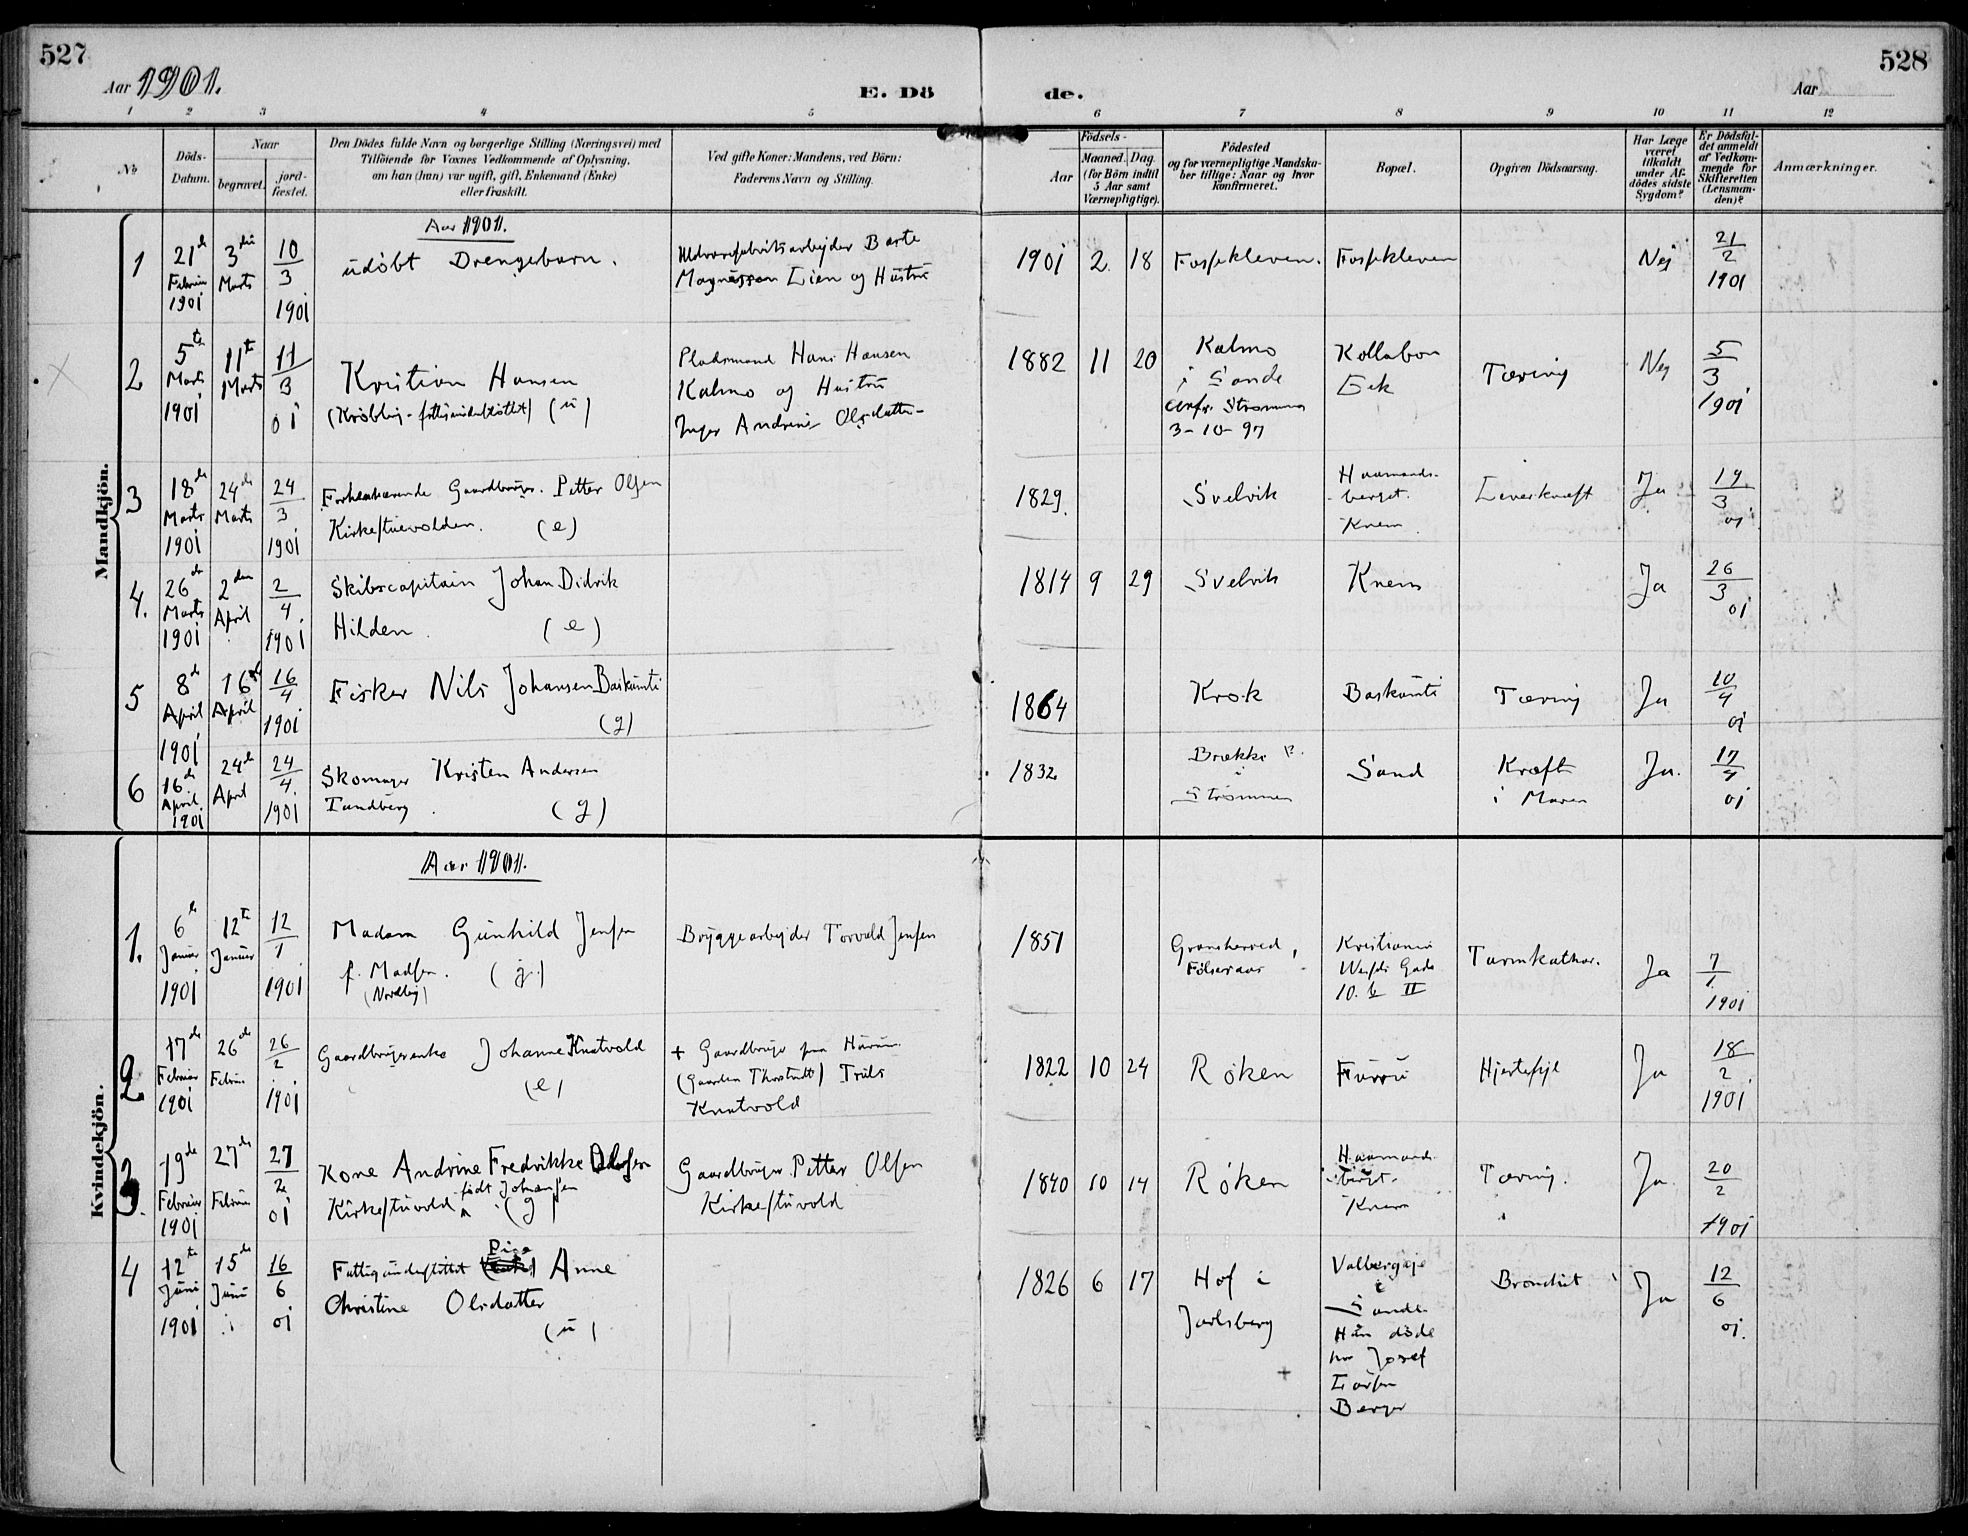 527
528
Aar 1901.
E. Dö
de.
Aar
1 2 3 4 5 6 7 8 9 10 11 12
No
Döds-
Datum.
Naar
begravet.
jord-
fæstet.
Den Dödes fulde Navn og borgerlige Stilling (Næringsvei) med
Tilföiende for Voxnes Vedkommende af Oplysning,
om han (hun) var ugift, gift, Enkemand (Enke)
eller fraskilt.
Ved gifte Koner: Mandens, ved Börn:
Faderens Navn og Stilling.
Födsels-
Aar
Maaned. Dag.
(for Börn indtil
5 Aar samt
Værnepligtige).
Födested
og for værnepligtige Mandska-
ber tillige: Naar og hvor
konfirmeret.
Bopæl.
Opgiven Dödsaarsag.
Har Læge
været
tilkaldt
under Af-
dödes sidste
Sygdom?
Er Dödsfal-
det anmeldt
af Vedkom-
mende for
Skifteretten
(Lensman-
den)?
Anmærkninger.
Mandkjön.
Aar 1901.
1
21de
Februar
1901
3die
Marts
10/3
1901
udöbt Drengebarn.
Barte
Magnussen Lien og Hustru
1901 2 18
Fossekleven.
Fossekleven
Nej
21/2
1901
2
5te
Marts
1901
11te
Marts
11/3
01
Kristian Hansen
(u)
Pladsmand Hans Hansen
Kalmo og Hustru
Inger Andrine Olsdatter
1882 11 20
Kalmo
i Sande
Strømmen
3-10-97
Eek
Tæring
Nej
5/3
1901
3
18de
Marts
1901
24de
Marts
24/3
1901
Forhenværende Gaardbruger. Petter Olsen
Kirkestuevolden. (e)
1829.
Svelvik
Haamands-
berget.
Knem
Leverkræft
Ja
19/3
01
4.
26de
Marts
1901
2den
April
2/4.
1901
Skibscapitain Johan Didrik
Hilden. (e)
1814 9 29
Svelvik
Knem
Ja
26/3
01
5
8de
April
1901
16de
April
16/4
1901
Fisker Nils Johansen Baskunti
(g)
1864
Krok
Baskunti
Tæring
Ja
10/4
01
6
16de
April
1901
24de
April
24/4.
1901
Skomager Kristen Andersen
Tandberg. (g)
1832
Brekke
i
Strømmen
Sand
Kræft
i Maven
Ja.
17/4
01
Kvindekjön.
Aar 1901.
1.
6te
Januar
1901
12te
Januar
12/1
1901
Madam Gunhild Jensen
f. Madsen. (g)
(Nordby)
Bryggearbejder Torvald Jensen
1851
Gransherred,
Kristiania
Gade
10. b II
Tarmkathar.
Ja
7/1.
1901
2
17de
Februar
1901
26de
Febru
26/2
1901
Gaardbrugerenke Johanne Knatvold
(e)
+ Gaardbruger paa Hurum
(Gaarden) Truls
Knatvold
1822 10 24
Røken
Hjertefejl
Ja
18/2
1901
3.
19de
Februar
1901
27de
Februar
27/2
01
Kone Andrine Fredrikke Olsen
Kirkestuvold født Johansen (g)
Gaardbruger Petter Olsen
Kirkestuvold
1840 10 14
Røken
Haamands-
berget.
Knem
Tæring.
Ja
20/2
1901
4
12te
Juni
1901
15de
Juni
16/6
01
Fattigunderstøttet Pige Anne
Christine Olsdatter
(u)
1826 6 17
Hof i
Jarlsberg
i
Sande
Hun døde
hos Josef
Larsen
Berger
Bronchit
Ja
12/6
01.